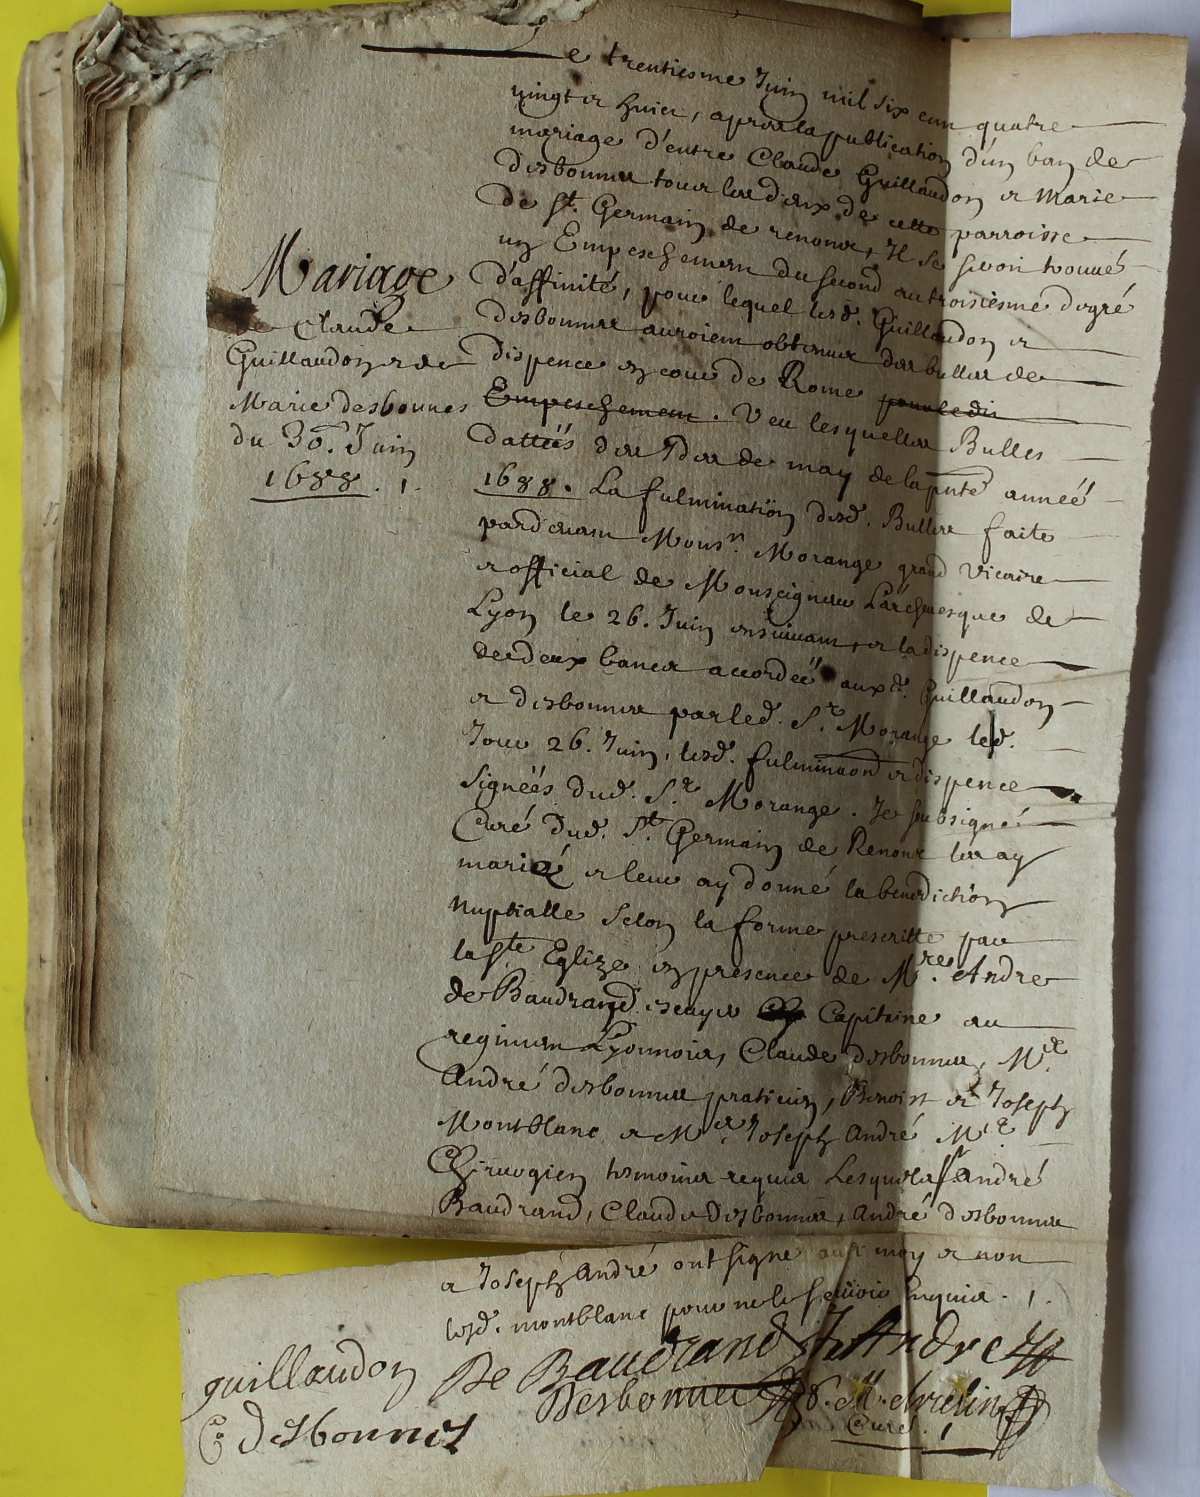 Mariage
de Claude
Guillaudon et de
Marie desbonnes
du 30.e Juin
1688 . 1.
e trentiesme Juin mil six cen quatre
vingt et huict, apres la publication d'un ban de
mariage d'entre Claude Guillaudon et Marie
desbonnes tous les deux de cette parroisse
de st. Germain de renone, Il se seroit trouué
un Empeschemen du second au troisiesme degré
d'affinité, pour lequel lesd. Guillaudon et
desbonnes auroient obtenus des bulles de
dispence en cour de Rome pour ledit
Empeschement. Veu lesquelles Bulles
dattéés des Ides de may de la pnte annéé
1688. La fulmination desd. Bulles faite
pardeuant Monsr. Morange grand Vicaire
et official de Monseigneur L'archeuesque de
Lyon le 26. Juin ensuiuant, et la dispence
de deux bancs accordéé auxd. Guillaudon
et desbonnes par led. Sr. Morange led.
Jour 26. Juin, lesd. fulminaon et dispence
signéés dud. Sr. Morange. Je soubsigné
Curé dud. St. Germain de Renone les ay
mariez et leur ay donné la benediction
Nuptialle selon la forme prescritte par
la Ste Eglize en presence de Mre. Andre
de Baudrand escuyer Capitaine au
regimen Lyonnois, Claude desbonnes, Me.
André desbonnes praticien, Benoist et Joseph
Montblanc et Me. Joseph André Mre
Chirurgien tesmoins requis Lesquels Sr. André
Baudrand, Claude desbonnes, André desbonnes
et Joseph André ont signé auec moy et non
lesd. montblanc pour ne le sçauoir Enquis. 1.
guillaudon De Baudrand J. Andre
C. Desbonnes Desbonnes
Curé. 1